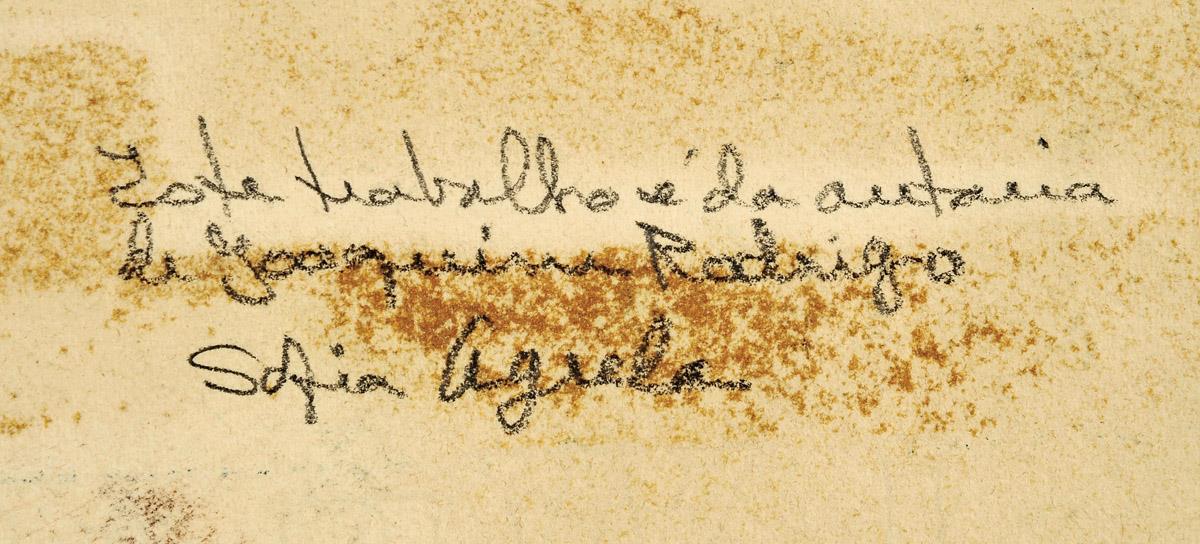 Este trabalho é da autoria
de Joaquim Rodrigo
Sofia Aguela